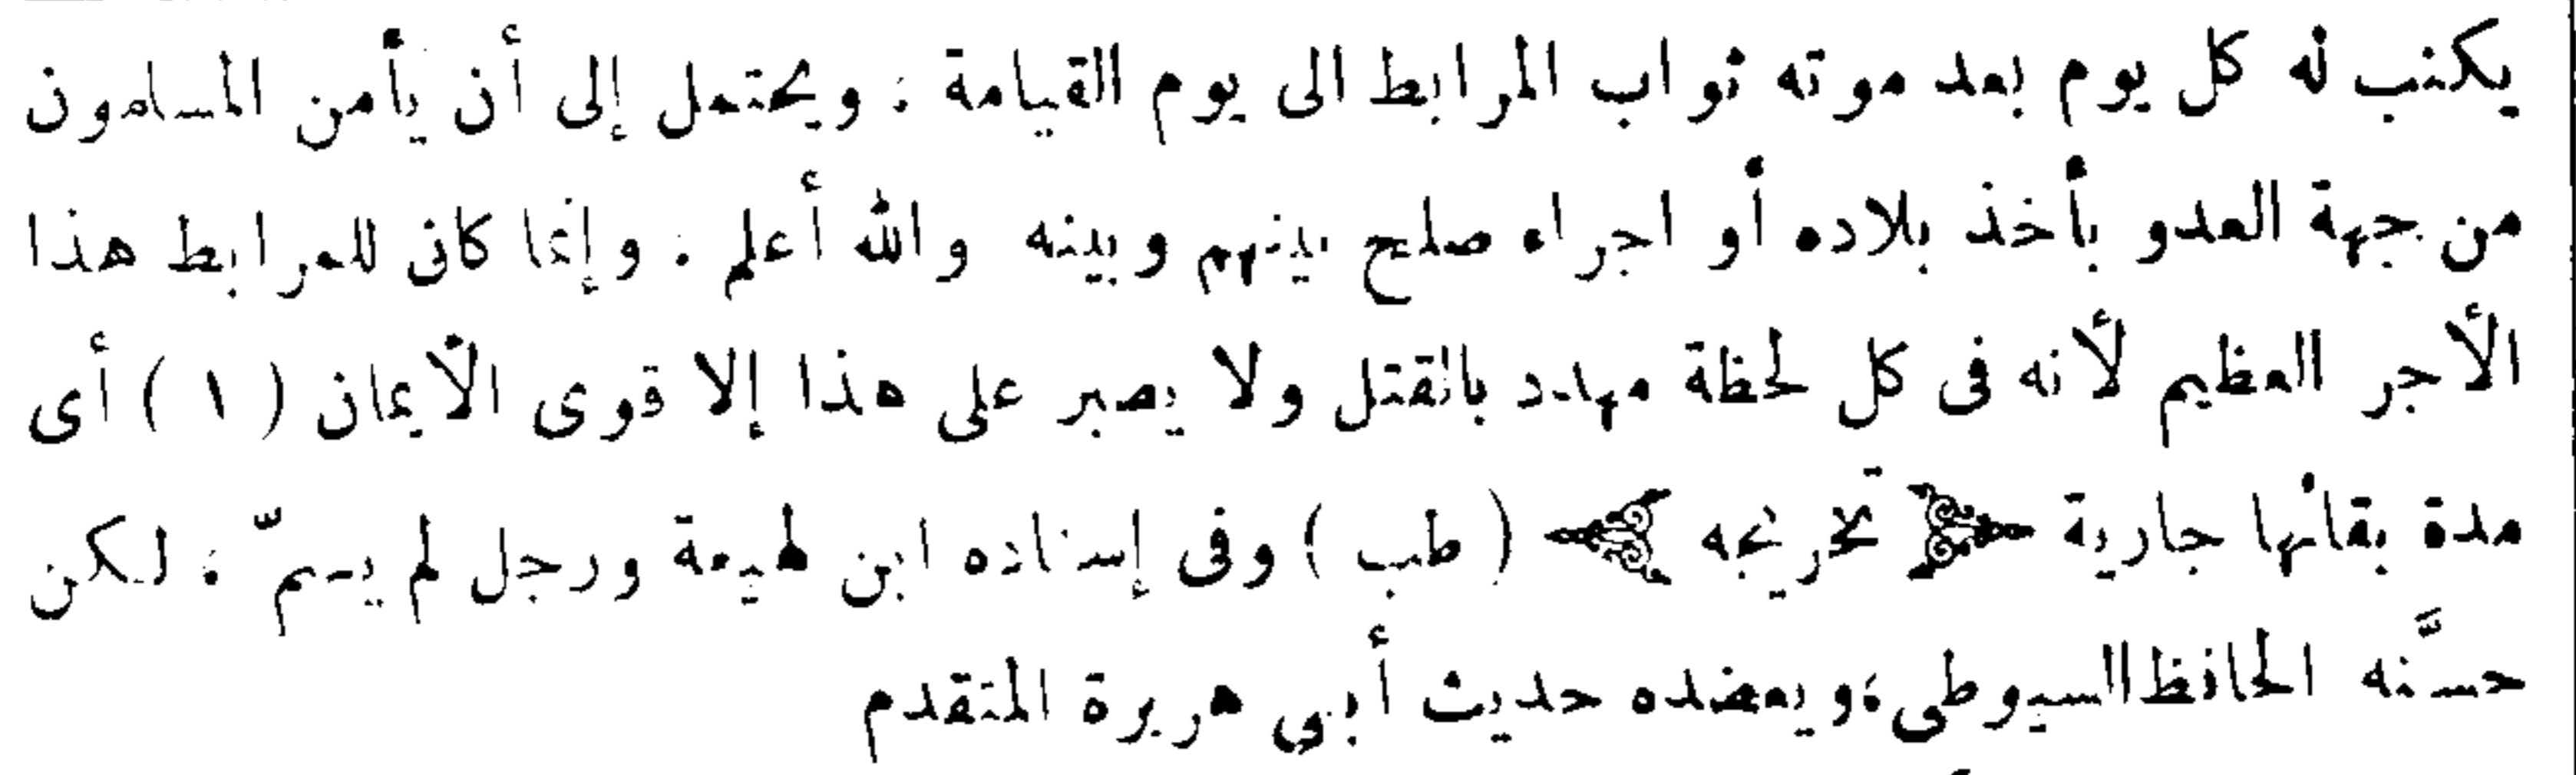 يكتب له كل يوم بعد موته ثواب المرابط الى يوم القيامة ، ويحتمل إلى أن يأمن المسلمون
من جهة العدو بأخذ بلاده أو اجراء صلح بينهم وبينه والله أعلم . وإنما كان للمرابط هذا
الأجر العظيم لأنه فى كل لحظة مهدد بالقتل ولا يصبر على هذا إلا قوى الأيمان ( ١ ) أى
مدة بقائها جارية ﴿ تخريجه ﴾ ( طب ) وفى إسناده ابن لهيعة ورجل لم يسمّ ، لكن
حسَّنه الحافظ السيوطى ، ويعضده حديث أبى هريرة المتقدم